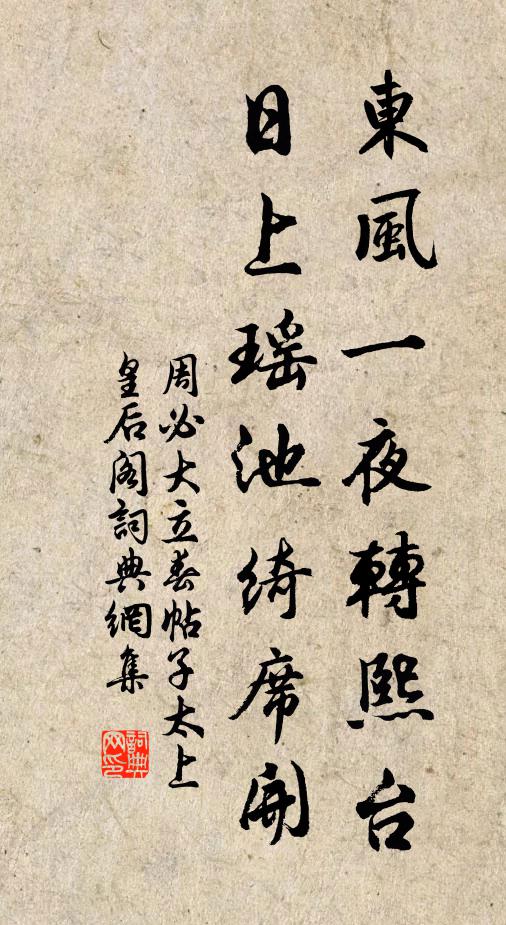 東風一夜轉熙台
日上瑤池綺席開
周必大立春帖子太上
皇后阁詞典網集
詞典
网印